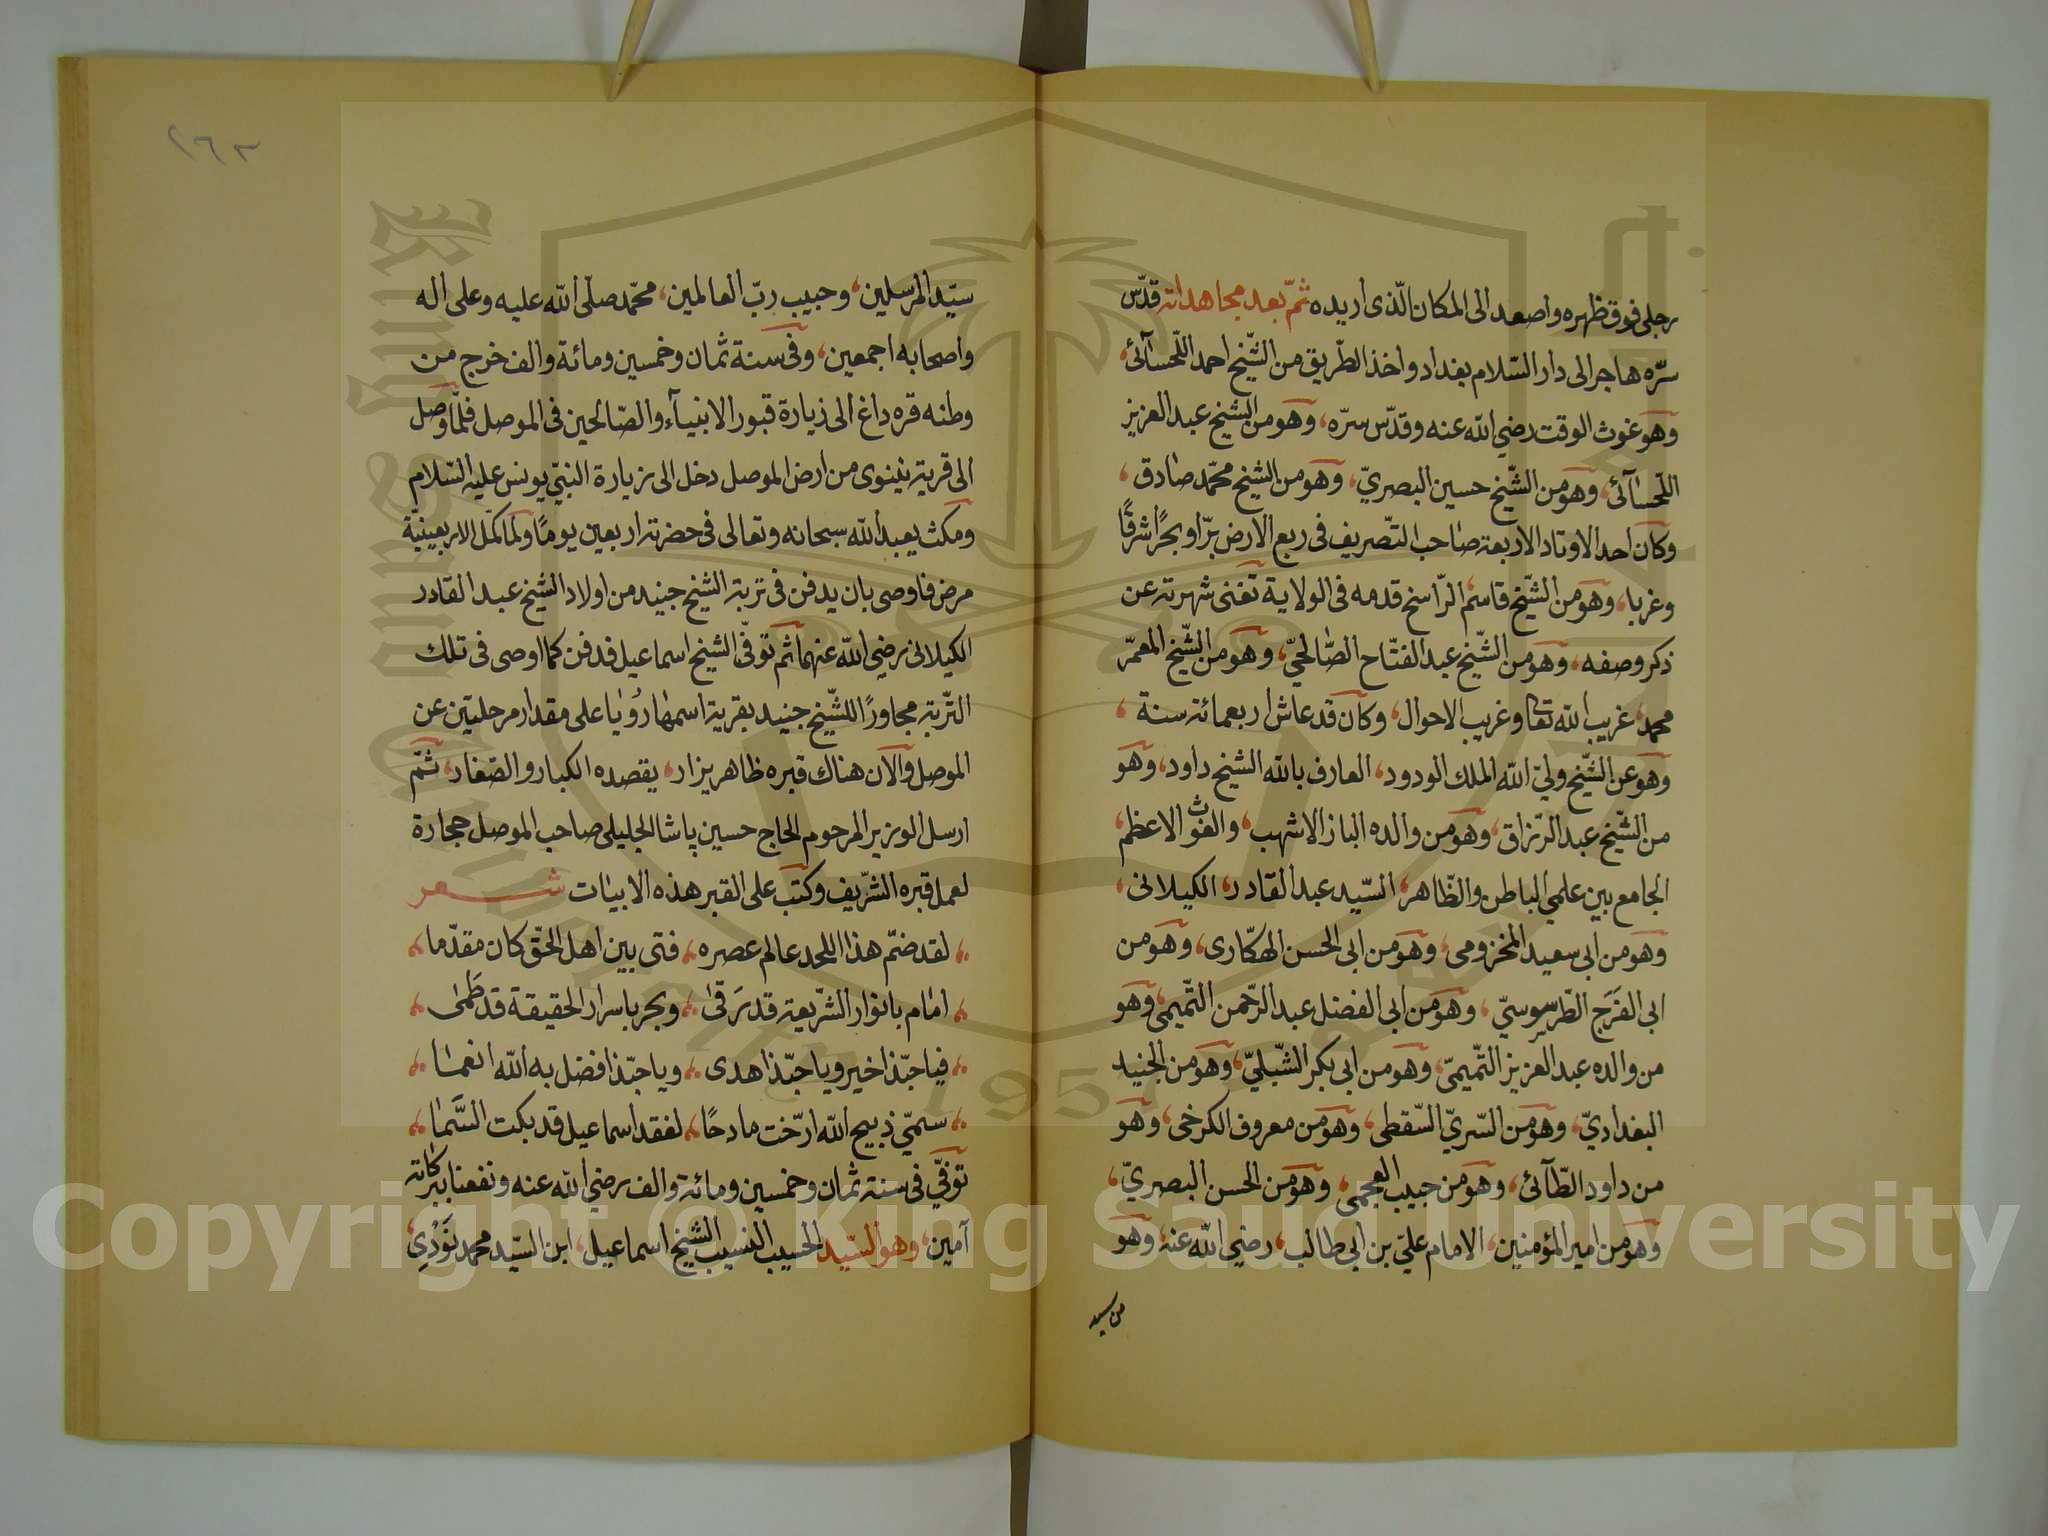 رجلى فوق ظهره واصعد الى المكان الّذى اريده ثمّ بعد مجاهداته قدّس
سرّه هاجر الى دار السّلام بغداد واخذ الطّريق من الشّيخ احمد اللّحسآئى
وهو غوث الوقت رضي الله عنه وقدّس سرّه، وهو من الشّيخ عبد العزيز
اللّحسآئى، وهو من الشّيخ حسين البصريّ، وهو من الشيخ محمّد صادق،
وكان احد الاوتاد الاربعة صاحب التّصريف فى ربع الارض برّا وبحرًا شرقًا
وغربا، وهو من الشّيخ قاسم الرّاسخ قدمه فى الولاية تغنى شهرته عن
ذكر وصفه، وهو من الشّيخ عبد الفتّاح الصّالحيّ، وهو من الشّيخ المعمّر
محمد، غريب الله تعالى وغريب الاحوال، وكان قد عاش اربعمائة سنة،
وهو عن الشّيخ وليّ الله الملك الودود، العارف بالله الشيخ داود، وهو
من الشّيخ عبد الرّزاق، وهو من والده الباز الاشهب، والغوث الاعظم،
الجامع بين علمي الباطن والظّاهر، السّيد عبد القادر، الكيلانى،
وهو من ابى سعيد المخزومى، وهو من ابى الحسن الهكّارى، وهو من
ابى الفَرَج الطّرسوسيّ، وهو من ابى الفضل عبد الرّحمن التّميمى، وهو
من والده عبد العزيز التّميمىّ، وهو من ابى بكر الشّبليّ، وهو من الجنيد
البغداديّ، وهو من السّريّ السّقطى، وهو من معروف الكرخى، وهو
من داود الطّآئى، وهو من حبيب العجمى، وهو من الحسن البصريّ،
وهو من امير المؤمنين، الامام عليّ بن ابى طالب، رضي الله عنه، وهو
من سيد
٢٦٣
سيّد المرسلين، وحبيب ربّ العالمين، محمّد صلّى الله عليه وعلى اله
واصحابه اجمعين، وفى سنة ثمان وخمسين ومائة والف خرج من
وطنه قره داغ الى زيارة قبور الانبيآء والصّالحين فى الموصل فلمّا وصل
الى قرية نينوى من ارض الموصل دخل الى زيارة النبيّ يونس عليه السّلام
ومكث يعبد الله سبحانه وتعالى فى حضرته اربعين يومًا ولما كمل الاربعينيّة
مرض فاوصى بان يدفن فى تربة الشيخ جنيد من اولاد الشيخ عبد القادر
الكيلانى رضي الله عنهما ثم توفّى الشيخ اسماعيل فدفن كما اوصى فى تلك
التّربة مجاورًا للشّيخ جنيد بقرية اسمها رُؤيا على مقدار مرحلتين عن
الموصل والآن هناك قبره ظاهر يزار، يقصده الكبار والصّغار، ثمّ
ارسل الوزير المرحوم الحاج حسين پاشا الجليلى صاحب الموصل حجارة
لعمل قبره الشّريف وكتب على القبر هذه الابيات شعر
لقد ضمّ هذا اللحد عالم عصره، فتى بين اهل الحقّ كان مقدّما،
امام بانوار الشّريعة قد رَقى، وبحر باسرار الحقيقة قد طَمى،
فيا حبّذا خير ويا حبّذا هدى، ويا حبّذا فضل به الله انعما،
سميّ ذبيح الله ارّخت مادحًا، لفقد اسماعيل قد بكت السَّما،
توفّي فى سنة ثمان وخمسين ومائة والف رضي الله عنه ونفعنا ببركاته
آمين، وهو السّيد الحسيب النسيب الشيخ اسماعيل، ابن السّيد محمد نَوْدِىِ
Copyright © King Saud University
King Saud University
1957